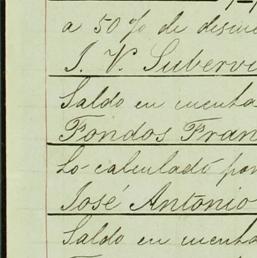 a 50% de
J. V. Subervi
Saldo en cuenta
Fondos Fran
Lo calculado por
José Antonio
Saldo en cuenta